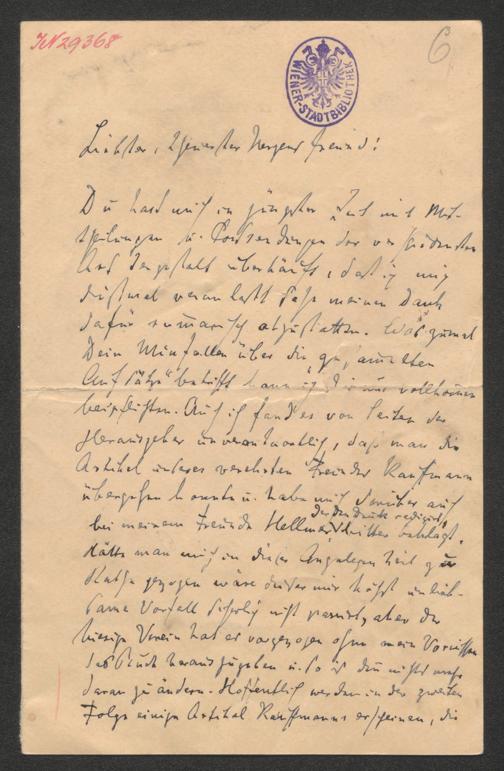 IN 29368
6
WIENER-STADTBIBLIOTHEK
Liebster, theuerster Herzensfreund!
Du hast mich in jüngster Zeit mit Mit-
theilungen u. Postsendungen der verschiedensten
Art dergestalt überhäuft, daß ich mich
dießmal veranlaßt sehe meinen Dank
dafür summarisch abzustatten. Was zumal
Dein Mißfallen über die gesammelten
Aufsätze betrifft kann ich Dir nur vollkommen
beipflichten. Auch ich fand es von Seiten der
Herausgeber unverantwortlich, daß man die
Artikel unseres verehrten Freundes Kauffmann
übergehen konnte u. habe mich darüber auch
bei meinem Freunde Hellmer, der den Druck redigirt, bitter beklagt.
Hätte man mich in dieser Angelegenheit zu
Rathe gezogen wäre dieser mir höchst unlieb-
same Vorfall sicherlich nicht passirt, aber der
hiesige Verein hat es vorgezogen ohne mein Vorwissen
das Buch herauszugeben u. so ist denn nichts mehr
daran zu ändern. Hoffentlich werden in der zweiten
Folge einige Artikel Kauffmanns erscheinen, die